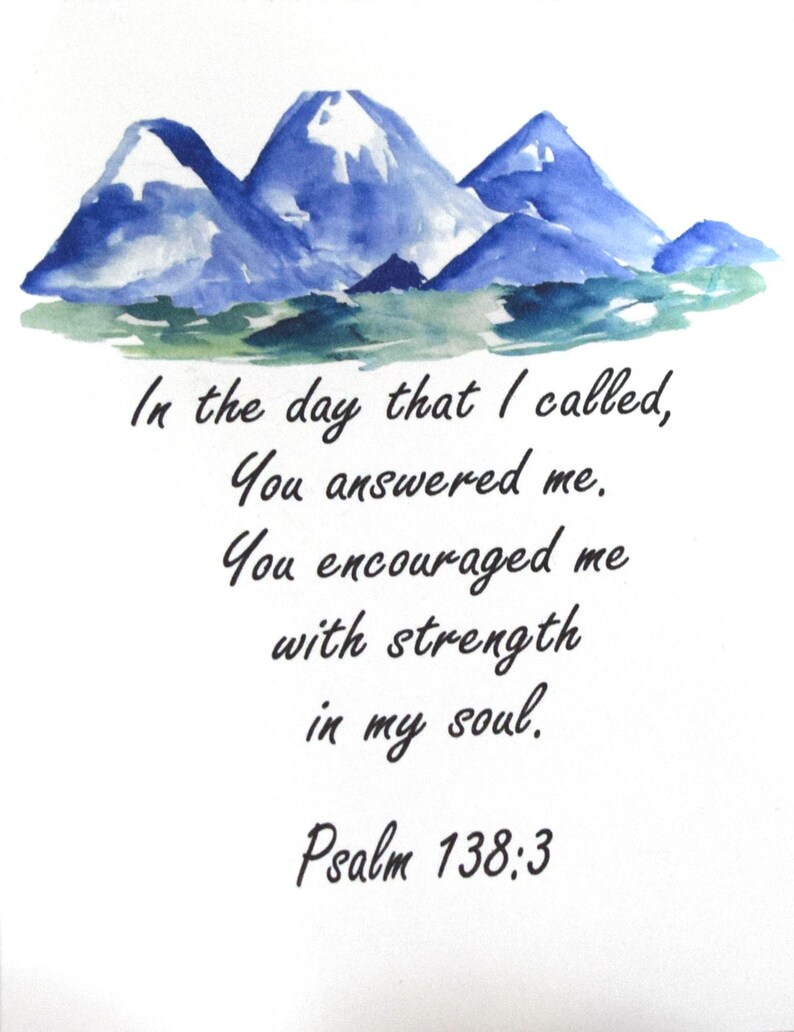 In the day that I called,
You answered me.
You encouraged me
with strength
in my soul.
Psalm 138:3